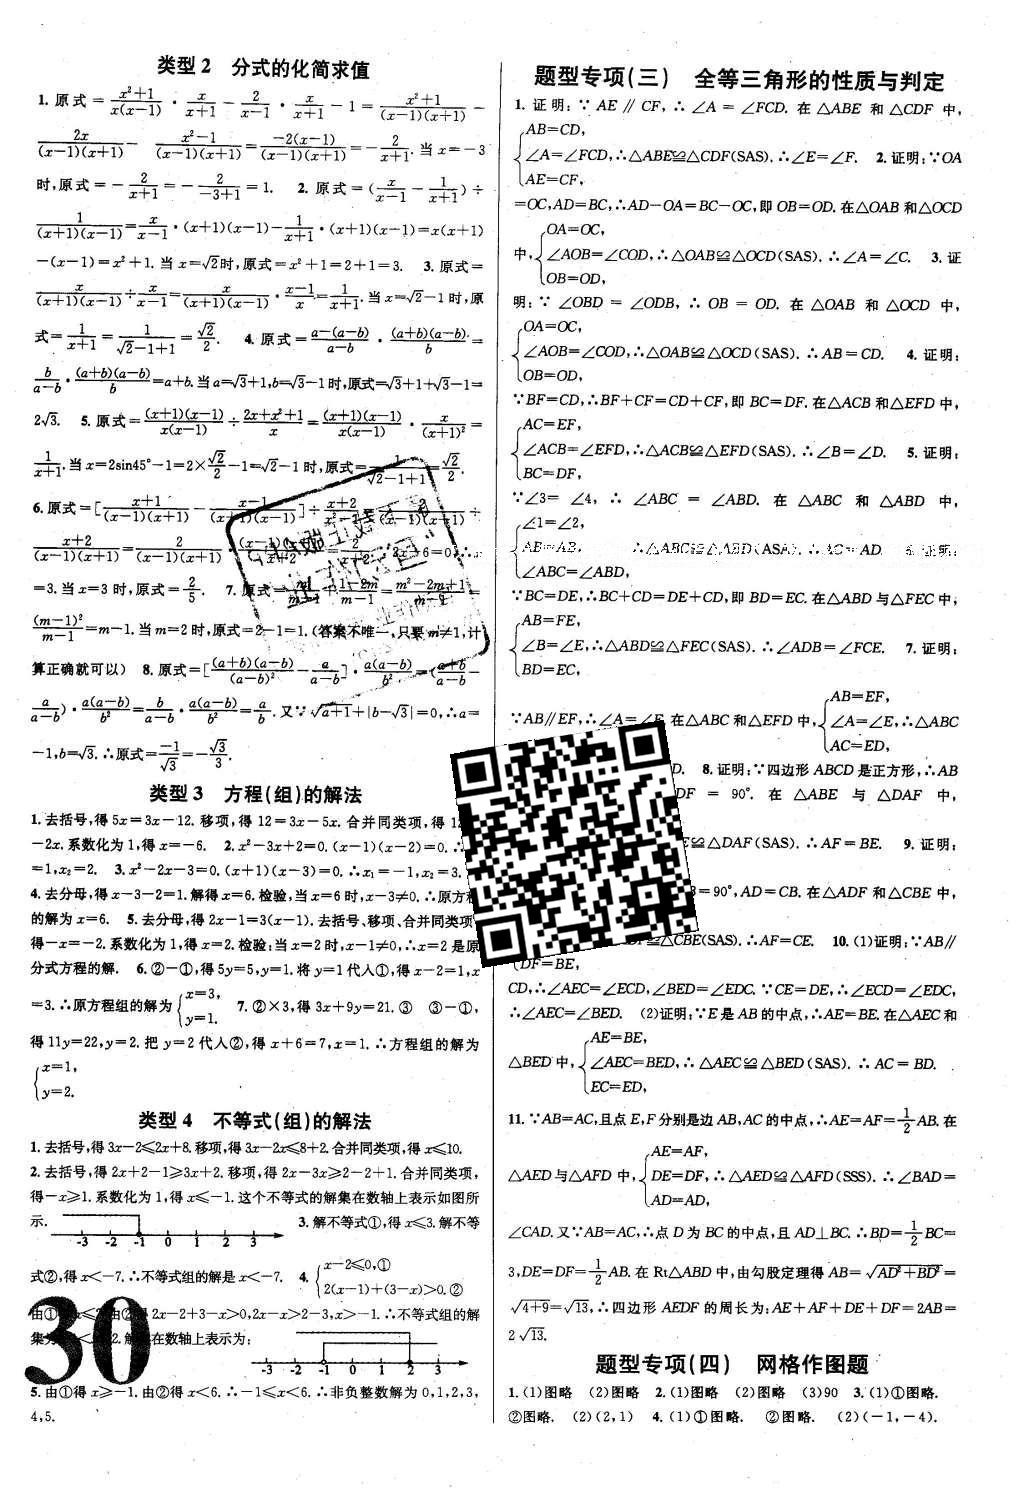 类型2 分式的化简求值
1. 原式=\frac{x²+1}{x(x-1)}·\frac{x}{x+1}-\frac{2}{x-1}·\frac{x}{x+1}-1=\frac{x²+1}{(x-1)(x+1)}-
\frac{2x}{(x-1)(x+1)}-\frac{x²-1}{(x-1)(x+1)}=\frac{-2(x-1)}{(x-1)(x+1)}=-\frac{2}{x+1}. 当 x=-3
时,原式=-\frac{2}{x+1}=-\frac{2}{-3+1}=1. 2. 原式=(\frac{x}{x-1}-\frac{1}{x+1})÷
\frac{1}{(x+1)(x-1)}=\frac{x}{x-1}·(x+1)(x-1)-\frac{1}{x+1}·(x+1)(x-1)=x(x+1)
-(x-1)=x²+1. 当 x=√2时,原式=x²+1=2+1=3. 3. 原式=
\frac{x}{(x+1)(x-1)}÷\frac{x}{x-1}=\frac{x}{(x+1)(x-1)}·\frac{x-1}{x}=\frac{1}{x+1}. 当 x=√2-1时,原
式=\frac{1}{x+1}=\frac{1}{√2-1+1}=\frac{√2}{2}. 4. 原式=\frac{a-(a-b)}{a-b}·\frac{(a+b)(a-b)}{b}=
\frac{b}{a-b}·\frac{(a+b)(a-b)}{b}=a+b. 当a=√3+1,b=√3-1时,原式=√3+1+√3-1=
2√3. 5. 原式=\frac{(x+1)(x-1)}{x(x-1)}÷\frac{2x+x²+1}{x}=\frac{(x+1)(x-1)}{x(x-1)}·\frac{x}{(x+1)²}=
\frac{1}{x+1}. 当 x=2sin45°-1=2×\frac{√2}{2}-1=√2-1时,原式=\frac{1}{√2-1+1}=\frac{√2}{2}.
6. 原式=[\frac{x+1}{(x-1)(x+1)}-\frac{x-1}{(x+1)(x-1)}]÷
\frac{x+2}{(x-1)(x+1)}=\frac{2}{(x-1)(x+1)}
=3. 当 x=3 时,原式=\frac{2}{5}. 7. 原式=\frac{1-2m}{m-1}=\frac{m²-2m+1}{m-1}=
\frac{(m-1)²}{m-1}=m-1. 当 m=2 时,原式=2-1=1. (答案不唯一,只要 m≠1,计
算正确就可以) 8. 原式=[\frac{(a+b)(a-b)}{(a-b)²}-\frac{a}{a-b}]·\frac{a(a-b)}{b²}=(\frac{a+b}{a-b}-
\frac{a}{a-b})·\frac{a(a-b)}{b²}=\frac{b}{a-b}·\frac{a(a-b)}{b²}=\frac{a}{b}. 又∵√a+1+|b-√3|=0,∴a=
-1,b=√3. ∴原式=\frac{-1}{√3}=-\frac{√3}{3}.
类型3 方程(组)的解法
1. 去括号,得 5x=3x-12. 移项,得 12=3x-5x. 合并同类项,得
-2x. 系数化为1,得 x=-6. 2. x²-3x+2=0. (x-1)(x-2)=0.
=1,x₂=2. 3. x²-2x-3=0. (x+1)(x-3)=0. ∴x₁=-1,x₂=3.
4. 去分母,得 x-3-2=1. 解得 x=6. 检验,当 x=6 时,x-3≠0. ∴原方程
的解为 x=6. 5. 去分母,得 2x-1=3(x-1). 去括号、移项、合并同类项,
得-x=-2. 系数化为1,得 x=2. 检验:当 x=2时,x-1≠0,∴x=2 是原
分式方程的解. 6. ②-①,得 5y=5,y=1. 将 y=1代入①,得 x-2=1,x
=3. ∴原方程组的解为{x=3, y=1. 7. ②×3,得 3x+9y=21. ③ ③-①,
得 11y=22,y=2. 把 y=2 代入②,得 x+6=7,x=1. ∴方程组的解为
{x=1,
y=2.
类型4 不等式(组)的解法
1. 去括号,得 3x-2≤2x+8. 移项,得 3x-2x≤8+2. 合并同类项,得 x≤10.
2. 去括号,得 2x+2-1≥3x+2. 移项,得 2x-3x≥2-2+1. 合并同类项,
得-x≥1. 系数化为1,得 x≤-1. 这个不等式的解集在数轴上表示如图所
示. 3. 解不等式①,得 x≤3. 解不等
-3 -2 -1 0 1 2 3
式②,得 x<-7. ∴不等式组的解是 x<-7. 4. {x-2≤0,① 2(x-1)+(3-x)>0. ②
2x-2+3-x>0,2x-x>2-3,x>-1. ∴不等式组的解
在数轴上表示为:
-3 -2 -1 0 1 2 3
5. 由①得 x≥-1. 由②得 x<6. ∴-1≤x<6. ∴非负整数解为 0,1,2,3,
4,5.
30
题型专项(三) 全等三角形的性质与判定
1. 证明:∵AE∥CF,∴∠A=∠FCD. 在△ABE 和△CDF 中,
{AB=CD,
∠A=∠FCD,∴△ABE≌△CDF(SAS). ∴∠E=∠F. 2. 证明:∵OA
AE=CF,
=OC,AD=BC,∴AD-OA=BC-OC,即 OB=OD. 在△OAB 和△OCD
{OA=OC,
中, ∠AOB=∠COD,∴△OAB≌△OCD(SAS). ∴∠A=∠C. 3. 证
OB=OD,
明:∵∠OBD=∠ODB,∴OB=OD. 在△OAB 和△OCD 中,
{OA=OC,
∠AOB=∠COD,∴△OAB≌△OCD(SAS). ∴AB=CD. 4. 证明:
OB=OD,
∵BF=CD,∴BF+CF=CD+CF,即 BC=DF. 在△ACB 和△EFD 中,
{AC=EF,
∠ACB=∠EFD,∴△ACB≌△EFD(SAS). ∴∠B=∠D. 5. 证明:
BC=DF,
∵∠3=∠4,∴∠ABC=∠ABD. 在△ABC 和△ABD 中,
{∠1=∠2,
AB=AB, ∴△ABC≌△ABD(ASA). ∴AC=AD. 6. 证明:
∠ABC=∠ABD,
∵BC=DE,∴BC+CD=DE+CD,即 BD=EC. 在△ABD 与△FEC 中,
{AB=FE,
∠B=∠E,∴△ABD≌△FEC(SAS). ∴∠ADB=∠FCE. 7. 证明:
BD=EC,
{AB=EF,
∵AB∥EF,∴∠A=∠E. 在△ABC 和△EFD 中, ∠A=∠E,∴△ABC
AC=ED,
D. 8. 证明:∵四边形 ABCD 是正方形,∴AB
DF=90°. 在△ABE 与△DAF 中,
≌△DAF(SAS). ∴AF=BE. 9. 证明:
=90°,AD=CB. 在△ADF 和△CBE 中,
≌△CBE(SAS). ∴AF=CE. 10. (1)证明:∵AB∥
DF=BE,
CD,∴∠AEC=∠ECD,∠BED=∠EDC. ∵CE=DE,∴∠ECD=∠EDC,
∴∠AEC=∠BED. (2)证明:∵E 是 AB 的中点,∴AE=BE. 在△AEC 和
{AE=BE,
△BED 中, ∠AEC=∠BED,∴△AEC≌△BED(SAS). ∴AC=BD.
EC=ED,
11. ∵AB=AC,且点 E,F 分别是边 AB,AC 的中点,∴AE=AF=\frac{1}{2}AB. 在
{AE=AF,
△AED 与△AFD 中, DE=DF,∴△AED≌△AFD(SSS). ∴∠BAD=
AD=AD,
∠CAD. 又∵AB=AC,∴点 D 为 BC 的中点,且 AD⊥BC. ∴BD=\frac{1}{2}BC=
3,DE=DF=\frac{1}{2}AB. 在 Rt△ABD 中,由勾股定理得 AB=√AD²+BD²=
√4+9=√13,∴四边形 AEDF 的周长为:AE+AF+DE+DF=2AB=
2√13.
题型专项(四) 网格作图题
1. (1)图略 (2)图略 2. (1)图略 (2)图略 (3)90 3. (1)①图略.
②图略. (2)(2,1) 4. (1)①图略. ②图略. (2)(-1,-4).